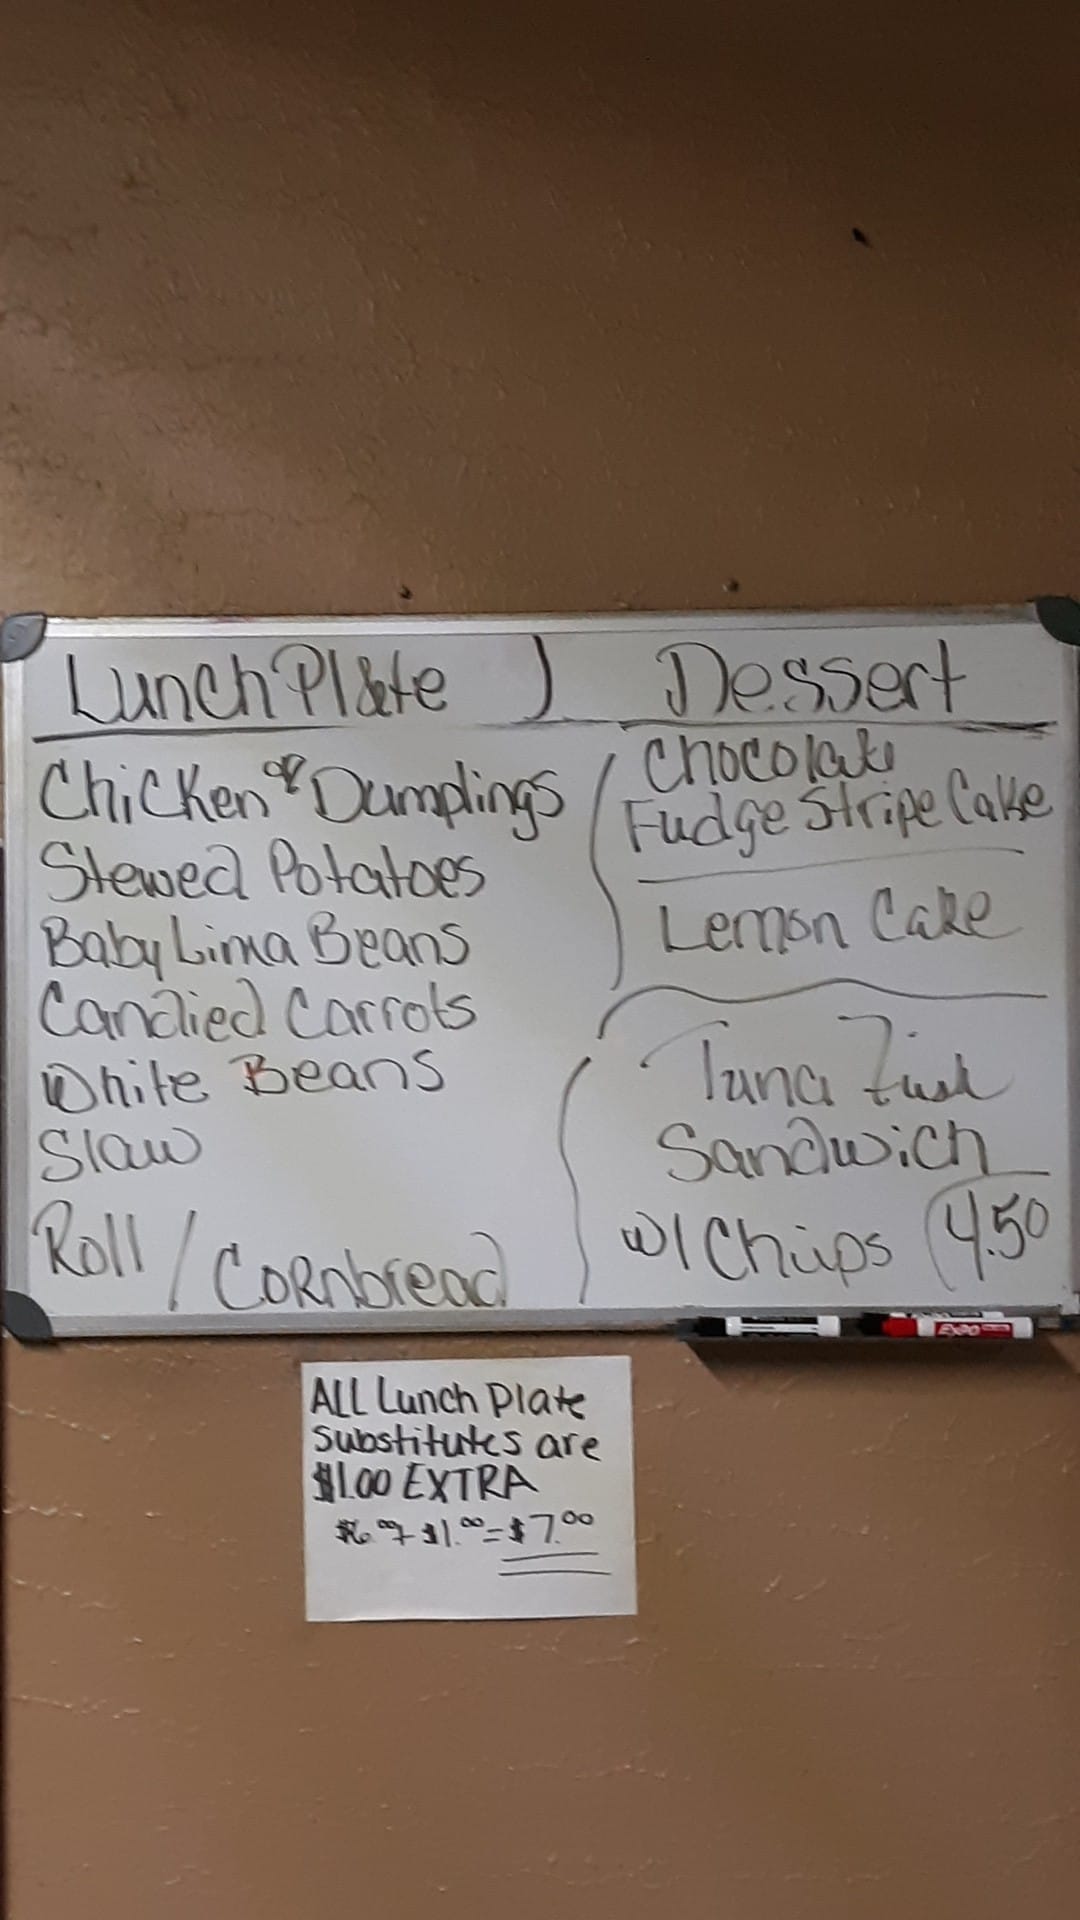 Lunch Plate
Chicken & Dumplings
Stewed Potatoes
Baby Lima Beans
Candied Carrots
White Beans
Slaw
Roll / Cornbread
Dessert
Chocolate
Fudge Stripe Cake
Lemon Cake
Tuna Fish
Sandwich
w/ Chips 4.50
EXPO
ALL Lunch Plate
Substitutes are
$1.00 EXTRA
$6.00 + $1.00 = $7.00